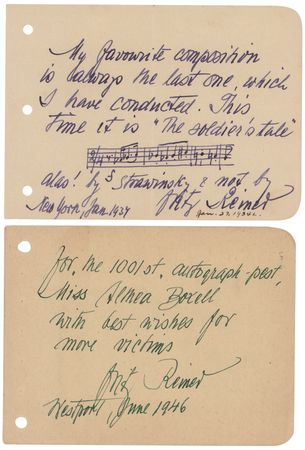 My favourite composition
is always the last one, which
I have conducted. This
time it is "The soldier's tale"
alas! by S Strawinsky & not by
New York, Jan. 1937 Fritz Reiner
Jan. 27, 1936
For, the 1001st, autograph-pest,
Miss Althea Boxell
with best wishes for
more victims
Fritz Reiner
Westport, June 1946